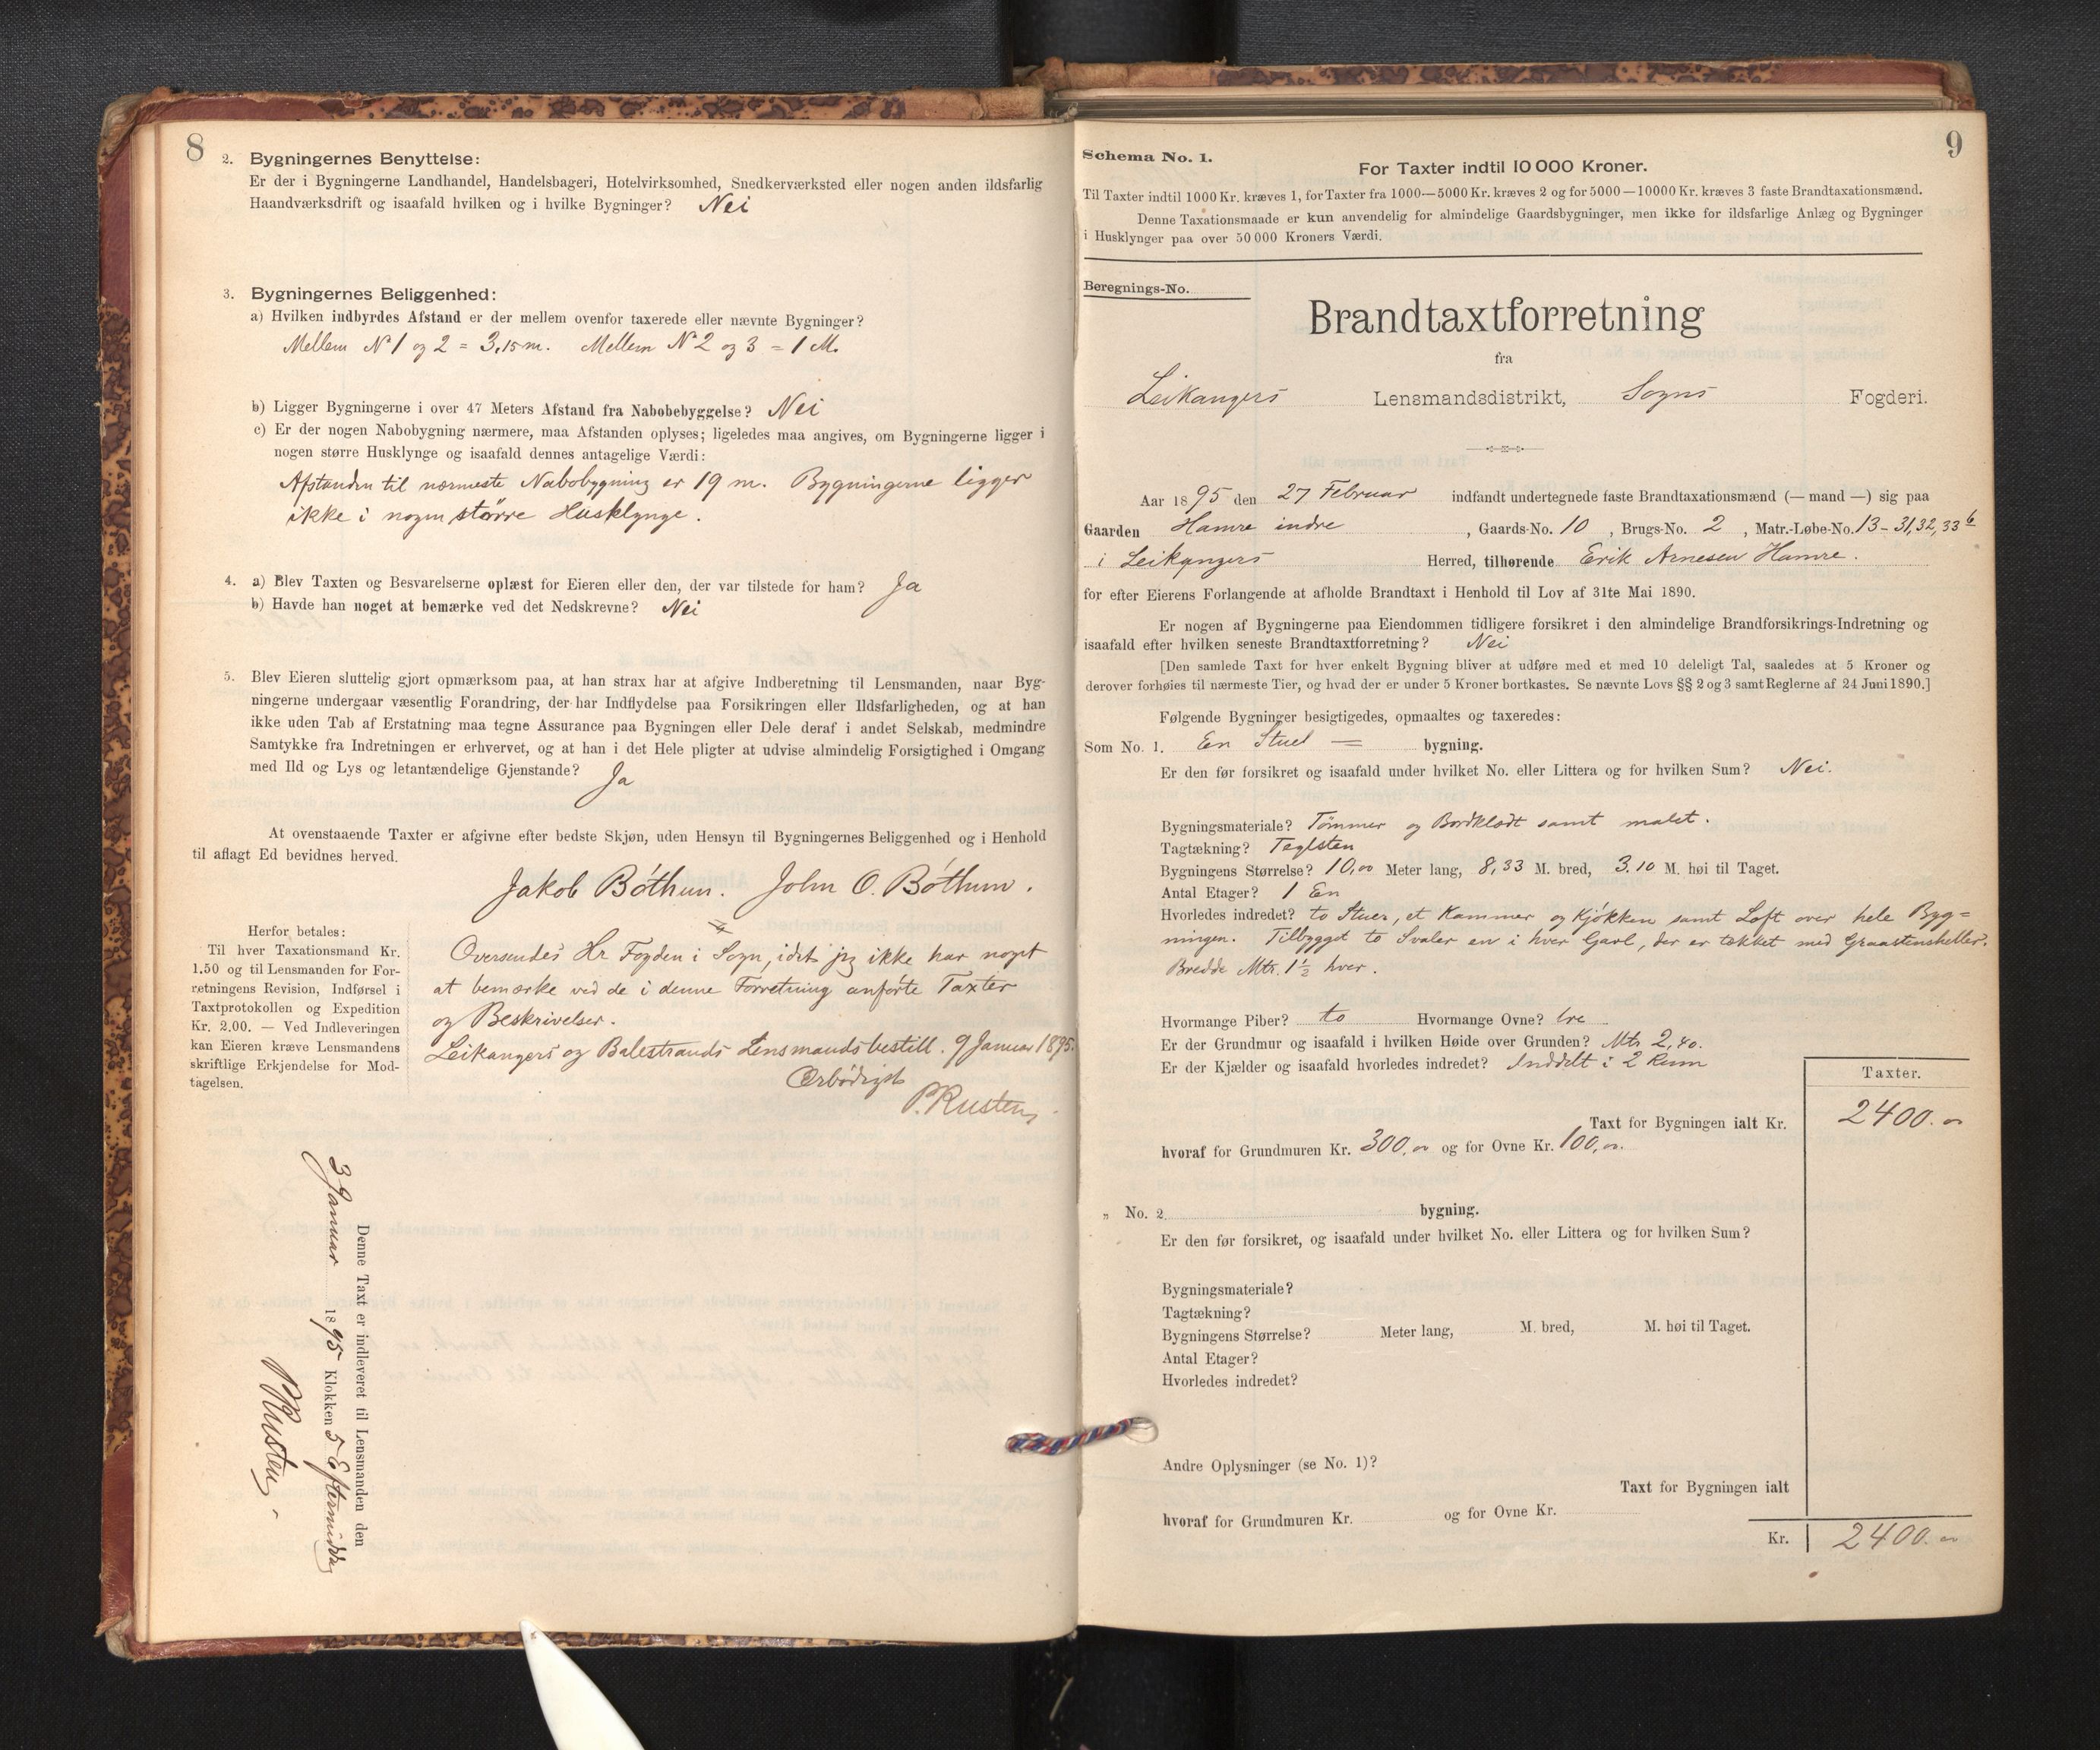 8
2. Bygningernes Benyttelse:
Er der i Bygningerne Landhandel, Handelsbageri, Hotelvirksomhed, Snedkerværksted eller nogen anden ildsfarlig
Haandværksdrift og isaafald hvilken og i hvilke Bygninger? Nei
3. Bygningernes Beliggenhed:
a) Hvilken indbyrdes Afstand er der mellem ovenfor taxerede eller nævnte Bygninger?
Mellem No 1 og 2 = 3,15 m. Mellem No 2 og 3 = 1 M.
b) Ligger Bygningerne i over 47 Meters Afstand fra Nabobebyggelse? Nei
c) Er der nogen Nabobygning nærmere, maa Afstanden oplyses; ligeledes maa angives, om Bygningerne ligger i
nogen større Husklynge og isaafald dennes antagelige Værdi:
Afstanden til nærmeste Nabobygning er 19 m. Bygningerne ligger
ikke i nogen større Husklynge.
4. a) Blev Taxten og Besvarelserne oplæst for Eieren eller den, der var tilstede for ham? Ja
b) Havde han noget at bemærke ved det Nedskrevne? Nei
5. Blev Eieren sluttelig gjort opmærksom paa, at han strax har at afgive Indberetning til Lensmanden, naar Byg-
ningerne undergaar væsentlig Forandring, der har Indflydelse paa Forsikringen eller Ildsfarligheden, og at han
ikke uden Tab af Erstatning maa tegne Assurance paa Bygningen eller Dele deraf i andet Selskab, medmindre
Samtykke fra Indretningen er erhvervet, og at han i det Hele pligter at udvise almindelig Forsigtighed i Omgang
med Ild og Lys og letantændelige Gjenstande? Ja
At ovenstaaende Taxter er afgivne efter bedste Skjøn, uden Hensyn til Bygningernes Beliggenhed og i Henhold
til aflagt Ed bevidnes herved.
Jakob Bóthun. John O. Bóthun.
Herfor betales:
Til hver Taxationsmand Kr.
1.50 og til Lensmanden for For-
retningens Revision, Indførsel i
Taxtprotokollen og Expedition
Kr. 2.00. — Ved Indleveringen
kan Eieren kræve Lensmandens
skriftlige Erkjendelse for Mod-
tagelsen.
Oversendes Hr Fogden i Sogn, idet jeg ikke har noget
at bemærke ved de i denne Forretning anførte Taxter
og Beskrivelser.
Leikangers og Balestrands Lensmandsbestill. 9 Januar 1895.
Ærbödigst
P. Rusten
Denne Taxt er indleveret til Lensmanden den
3 Januar 1895 Klokken 5 Eftermiddag
P. Rusten
9
Schema No. 1.
For Taxter indtil 10 000 Kroner.
Til Taxter indtil 1000 Kr. kræves 1, for Taxter fra 1000—5000 Kr. kræves 2 og for 5000—10000 Kr. kræves 3 faste Brandtaxationsmænd.
Denne Taxationsmaade er kun anvendelig for almindelige Gaardsbygninger, men ikke for ildsfarlige Anlæg og Bygninger
i Husklynger paa over 50 000 Kroners Værdi.
Beregnings-No.
Brandtaxtforretning
fra
Leikangers Lensmandsdistrikt, Sogns Fogderi.
Aar 1895 den 27 Februar indfandt undertegnede faste Brandtaxationsmænd (— mand —) sig paa
Gaarden Hamre indre, Gaards-No. 10, Brugs-No. 2, Matr.-Løbe-No. 13 - 31, 32, 33 b
i Leikangers Herred, tilhørende Erik Arnesen Hamre.
for efter Eierens Forlangende at afholde Brandtaxt i Henhold til Lov af 31te Mai 1890.
Er nogen af Bygningerne paa Eiendommen tidligere forsikret i den almindelige Brandforsikrings-Indretning og
isaafald efter hvilken seneste Brandtaxtforretning? Nei
[Den samlede Taxt for hver enkelt Bygning bliver at udføre med et med 10 deleligt Tal, saaledes at 5 Kroner og
derover forhøies til nærmeste Tier, og hvad der er under 5 Kroner bortkastes. Se nævnte Lovs §§ 2 og 3 samt Reglerne af 24 Juni 1890.]
Følgende Bygninger besigtigedes, opmaaltes og taxeredes:
Som No. 1. En Stue bygning.
Er den før forsikret og isaafald under hvilket No. eller Littera og for hvilken Sum? Nei.
Bygningsmateriale? Tömmer og Bordklædt samt malet.
Tagtækning? Teglsten
Bygningens Størrelse? 10,00 Meter lang, 8,33 M. bred, 3.10 M. høi til Taget.
Antal Etager? 1 En
Hvorledes indredet? to Stuer, et Kammer og Kjökken samt Loft over hele Byg=
ningen. Tilbygget to Svaler en i hver Gavl, der er tækket med Graastensheller.
Bredde Mtr. 1½ hver.
Hvormange Piber? to Hvormange Ovne? tre
Er der Grundmur og isaafald i hvilken Høide over Grunden? Mtr 2,40.
Er der Kjælder og isaafald hvorledes indredet? Inddelt i 2 Rum
Taxter.
Taxt for Bygningen ialt Kr. 2400.00
hvoraf for Grundmuren Kr. 300,00 og for Ovne Kr. 100,00.
„ No. 2 bygning.
Er den før forsikret, og isaafald under hvilket No. eller Littera og for hvilken Sum?
Bygningsmateriale?
Tagtækning?
Bygningens Størrelse? Meter lang, M. bred, M. høi til Taget.
Antal Etager?
Hvorledes indredet?
Andre Oplysninger (se No. 1)?
Taxt for Bygningen ialt
hvoraf for Grundmuren Kr. og for Ovne Kr.
Kr. 2400.00